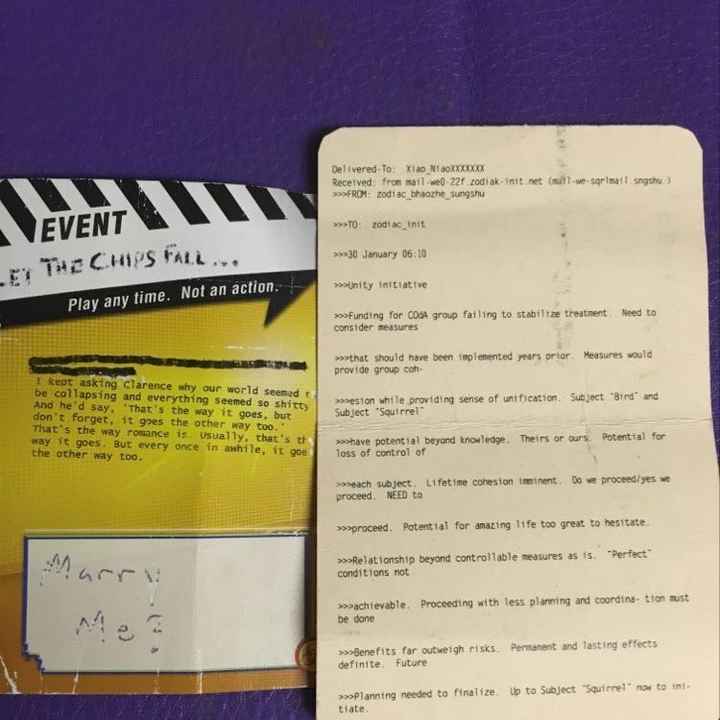 EVENT
LET THE CHIPS FALL...
Play any time. Not an action.
I kept asking Clarence why our world seemed
be collapsing and everything seemed so shitty
And he'd say, "That's the way it goes, but
don't forget, it goes the other way too."
That's the way romance is. Usually, that's th
way it goes. But every once in awhile, it goe
the other way too.
Marry
Me?
Delivered-To: Xiao_NiaoXXXXXXX
Received: from mail-we0-22f.zodiak-init.net (mail-we-sqrlmail.sngshu.)
>>>FROM: zodiac_bhaozhe_sungshu
>>>TO: zodiac_init
>>>30 January 06:10
>>>Unity initiative
>>>Funding for COdA group failing to stabilize treatment. Need to
consider measures
>>>that should have been implemented years prior. Measures would
provide group coh-
>>>esion while providing sense of unification. Subject "Bird" and
Subject "Squirrel"
>>>have potential beyond knowledge. Theirs or ours. Potential for
loss of control of
>>>each subject. Lifetime cohesion imminent. Do we proceed/yes we
proceed. NEED to
>>>proceed. Potential for amazing life too great to hesitate.
>>>Relationship beyond controllable measures as is. "Perfect"
conditions not
>>>achievable. Proceeding with less planning and coordina- tion must
be done
>>>Benefits far outweigh risks. Permanent and lasting effects
definite. Future
>>>Planning needed to finalize. Up to Subject "Squirrel" now to ini-
tiate.